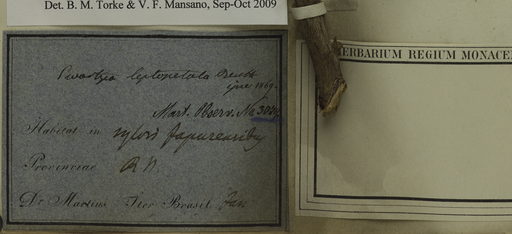 Det. B. M. Torke & V. F. Mansano, Sep-Oct 2009
HERBARIUM REGIUM MONACE
Swartzia leptopetala Benth
Mart. Observ. No
Habitat in sylvis Japurensibus
Provinciae R. N.
Dr. Martius Iter Brasil. Jan.